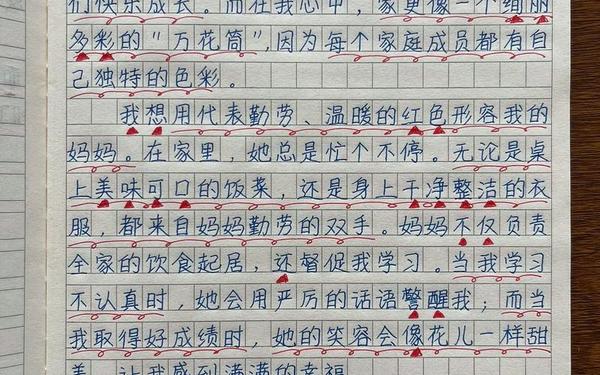 们快乐成长。而在我心中，家更像一个绚丽
多彩的“万花筒”，因为每个家庭成员都有自
己独特的色彩。
我想用代表勤劳、温暖的红色形容我的
妈妈。在家里，她总是忙个不停。无论是桌
上美味可口的饭菜，还是身上干净整洁的衣
服，都来自妈妈勤劳的双手。妈妈不仅负责
全家的饮食起居，还督促我学习。当我学习
不认真时，她会用严厉的话语警醒我；而当
我取得好成绩时，她的笑容会像花儿一样甜
美，让我感到满满的幸福